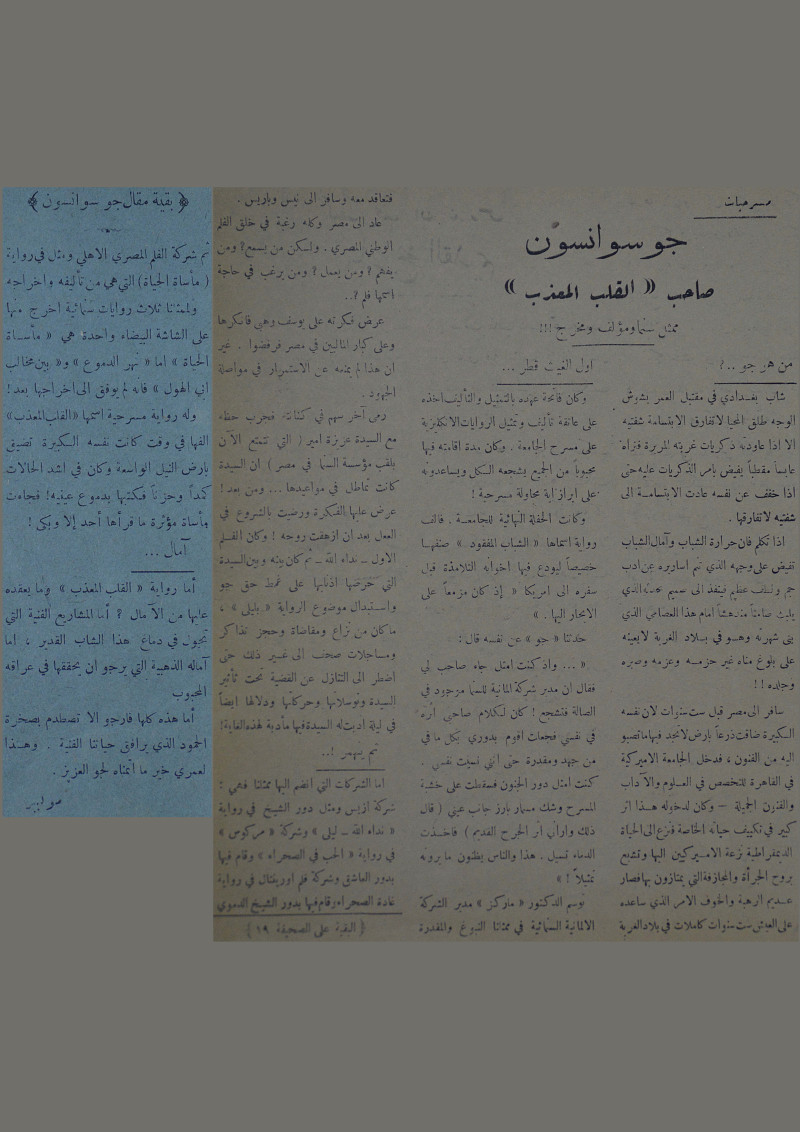 مسرحيات
جو سوانسون
صاحب « القلب المعذب »
ممثل سينما ومؤلف ومخرج !!!
من هو جو ..؟
شاب بغدادي في مقتبل العمر بشوش
الوجه طلق المحيا لا تفارق الابتسامة شفتيه
الا اذا عاودته ذكريات غربته المريرة فتراه
عابساً مقطباً يفيض بامر الذكريات عليه حتى
اذا خفف عن نفسه عادت الابتسامة الى
شفتيه لا تفارقها .
اذا تكلم فان حرارة الشباب وآمال الشباب
تفيض على وجهه الذي تنم اساريره عن ادب
جم ولطف عظيم فينفذ الى صميم محدثه الذي
يلبث صامتاً مندهشاً امام هذا العصامي الذي
بنى شهرته وهو في بلاد الغربة لا يعينه
على بلوغ مناه غير حزمه وعزمه وصبره
وجلده !!
سافر الى مصر قبل ست سنوات لان نفسه
الكبيرة ضاقت ذرعاً بارض لا تجد فيها ما تصبو
اليه من الفنون ، فدخل الجامعة الاميركية
في القاهرة للتخصص في العلوم والآداب
والفنون الجميلة — وكان لدخوله هذا اثر
كبير في تكييف حياته الخاصة فنزع الى الحياة
الديمقراطية نزعة الاميركيين اليها وتشبع
بروح الجرأة والمجازفة التي يمتازون بها فصار
عديم الرهبة والخوف الامر الذي ساعده
على العيش ست سنوات كاملات في بلاد الغربة
اول الغيث قطر ...
وكان فاتحة عهده بالتمثيل والتأليف اخذه
على عاتقه تأليف وتمثيل الروايات الانكليزية
على مسرح الجامعة . وكان مدة اقامته فيها
محبوباً من الجميع يشجعه الكل ويساعدونه
على ابراز اية محاولة مسرحية !
وكانت الحفلة النهائية للجامعة . فالف
رواية اسماها « الشباب المفقود » صنفها
خصيصاً ليودع فيها اخوانه التلامذة قبل
سفره الى امريكا « إذ كان مزمعاً على
الابحار اليها . »
حدثنا « جو » عن نفسه قال :
« ... واذ كنت امثل جاء صاحب لي
فقال ان مدير شركة المانية للسينما موجود في
الصالة فتشجع ! كان لكلام صاحبي اثره
في نفسي فجعلت اقوم بدوري بكل ما في
من جهد ومقدرة حتى انني نسيت نفسي .
كنت امثل دور الجنون فسقطت على خشبة
المسرح وشك مسمار بارز جانب عيني ( قال
ذلك واراني اثر الجرح القديم ) فاخذت
الدماء تسيل . هذا والناس يظنون ما يرونه
تمثيلاً ! »
توسم الدكتور « ماركز » مدير الشركة
الالمانية السينمائية في ممثلنا النبوغ والمقدرة
فتعاقد معه وسافر الى نيس وباريس .
عاد الى مصر وكله رغبة في خلق الفلم
الوطني المصري . ولكن من يسمع ؟ ومن
يفهم ؟ ومن يعمل ؟ ومن يرغب في حاجة
اسمها فلم ؟..
عرض فكرته على يوسف وهبي فانكرها
وعلى كبار الماليين في مصر فرفضوا . غير
ان هذا لم يمنعه عن الاستمرار في مواصلة
الجهود .
رمى آخر سهم في كنانته فجرب حظه
مع السيدة عزيزة امير ( التي تتمتع الآن
بلقب مؤسسة السينما في مصر ) ان السيدة
كانت تماطل في مواعيدها ... ومن بعد !
عرض عليها الفكرة ورضيت بالشروع في
العمل بعد ان ازهقت روحه ! وكان الفلم
الاول ــ نداء الله ــ ثم كان بينه وبين السيدة
التي حرضها اذنابها على غمط حق جو
واستبدال موضوع الرواية « بليلى » ،
ما كان من نزاع ومقاضاة وحجز تذاكر
ومساجلات صحف الى غير ذلك حتى
اضطر الى التنازل عن القضية تحت تأثير
السيدة وتوسلاتها وحركاتها ودلالها ايضاً
في ليلة أدبت له السيدة فيها مأدبة لهذه الغاية !
ثم ينهمر !..
اما الشركات التي انضم اليها ممثلنا فهي :
شركة ازيس ومثل دور الشيخ في رواية
« نداء الله ــ ليلى » وشركة « مركوس »
في رواية « الحب في الصحراء » وقام فيها
بدور العاشق وشركة فلم اورينتال في رواية
غادة الصحراء وقام فيها بدور الشيخ الدموي
( البقية على الصحيفة ١٩ )
﴿ بقية مقال جو سوانسون ﴾
ثم شركة الفلم المصري الاهلي ومثل في رواية
( مأساة الحياة ) التي هي من تأليفه واخراجه
ولممثلنا ثلاث روايات سنمائية اخرج منها
على الشاشة البيضاء واحدة هي « مأساة
الحياة » اما « نهر الدموع » و« بين مخالب
ابي الهول » فانه لم يوفق الى اخراجها بعد !
وله رواية مسرحية اسمها « القلب المعذب »
الفها في وقت كانت نفسه الكبيرة تضيق
بارض النيل الواسعة وكان في اشد الحالات
كمداً وحزناً فكتبها بدموع عينيه ! فجاءت
مأساة مؤثرة ما قرأها أحد إلا وبكى !
آمال ...
أما رواية « القلب المعذب » وما يعقده
عليها من الآمال ؟ أما المشاريع الفنية التي
تجول في دماغ هذا الشاب القدير ، اما
آماله الذهبية التي يرجو ان يحققها في عراقه
المحبوب
أما هذه كلها فارجو الا تصطدم بصخرة
الجمود الذي يرافق حياتنا الفنية . وهذا
لعمري خير ما أتمناه لجو العزيز .
مولير